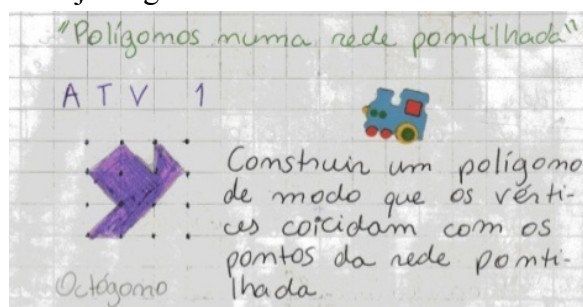 "Polígomos muma rede pomtilhada"
ATV 1
Comstruir um polígomo
de modo que os vérti-
ces coicidam com os
pomtos da rede pomti-
lhada.
Octógomo